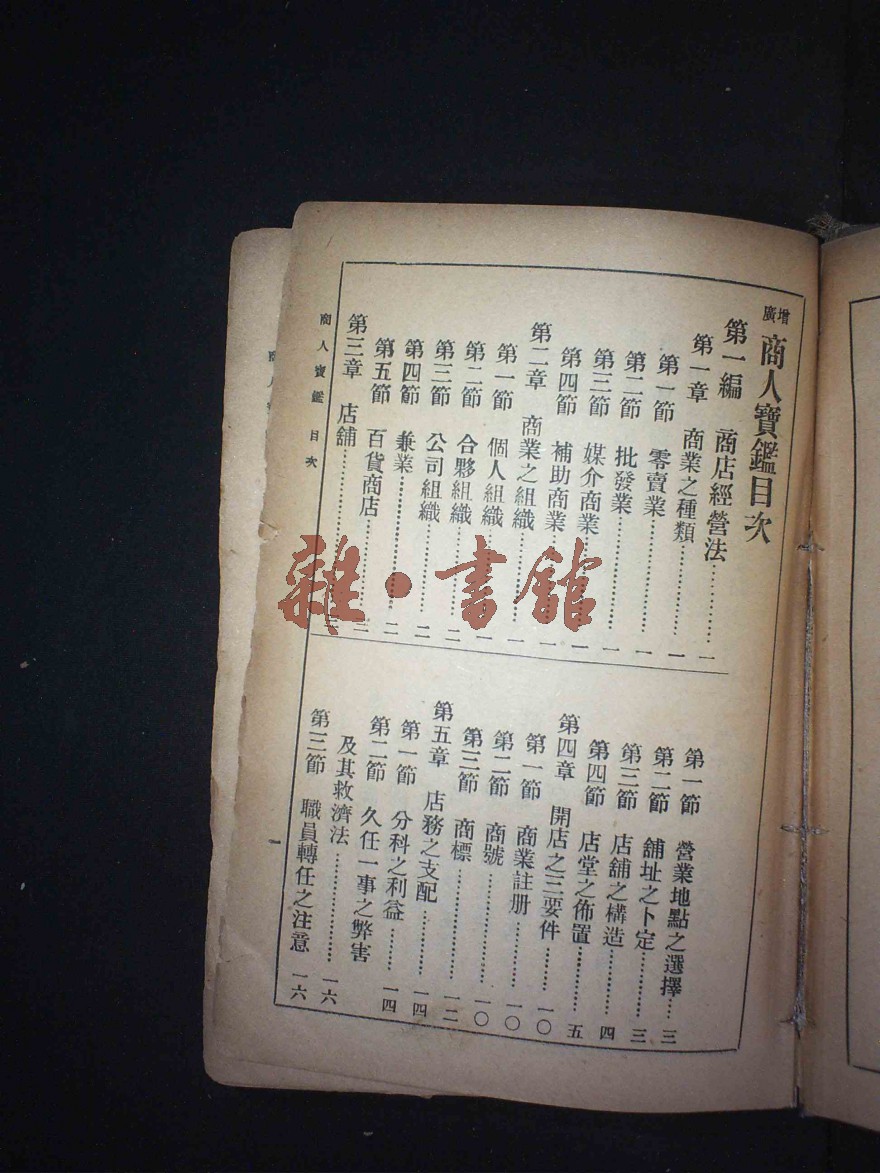 增廣 商人寶鑑目次
第一編 商店經營法……一
第一章 商業之種類……一
第一節 零賣業……一
第二節 批發業……一
第三節 媒介商業……一
第四節 補助商業……一
第二章 商業之組織……一
第一節 個人組織……一
第二節 合夥組織……二
第三節 公司組織……二
第四節 兼業……二
第五節 百貨商店……二
第三章 店舖……三
第一節 營業地點之選擇……三
第二節 舖址之卜定……三
第三節 店舖之構造……四
第四節 店堂之佈置……五
第四章 開店之三要件……一〇
第一節 商業註册……一〇
第二節 商號……一〇
第三節 商標……一二
第五章 店務之支配……一四
第一節 分科之利益……一四
第二節 久任一事之弊害
及其救濟法……一六
第三節 職員轉任之注意 一六
商人寶鑑 目次
一
商人寶
雜·書館